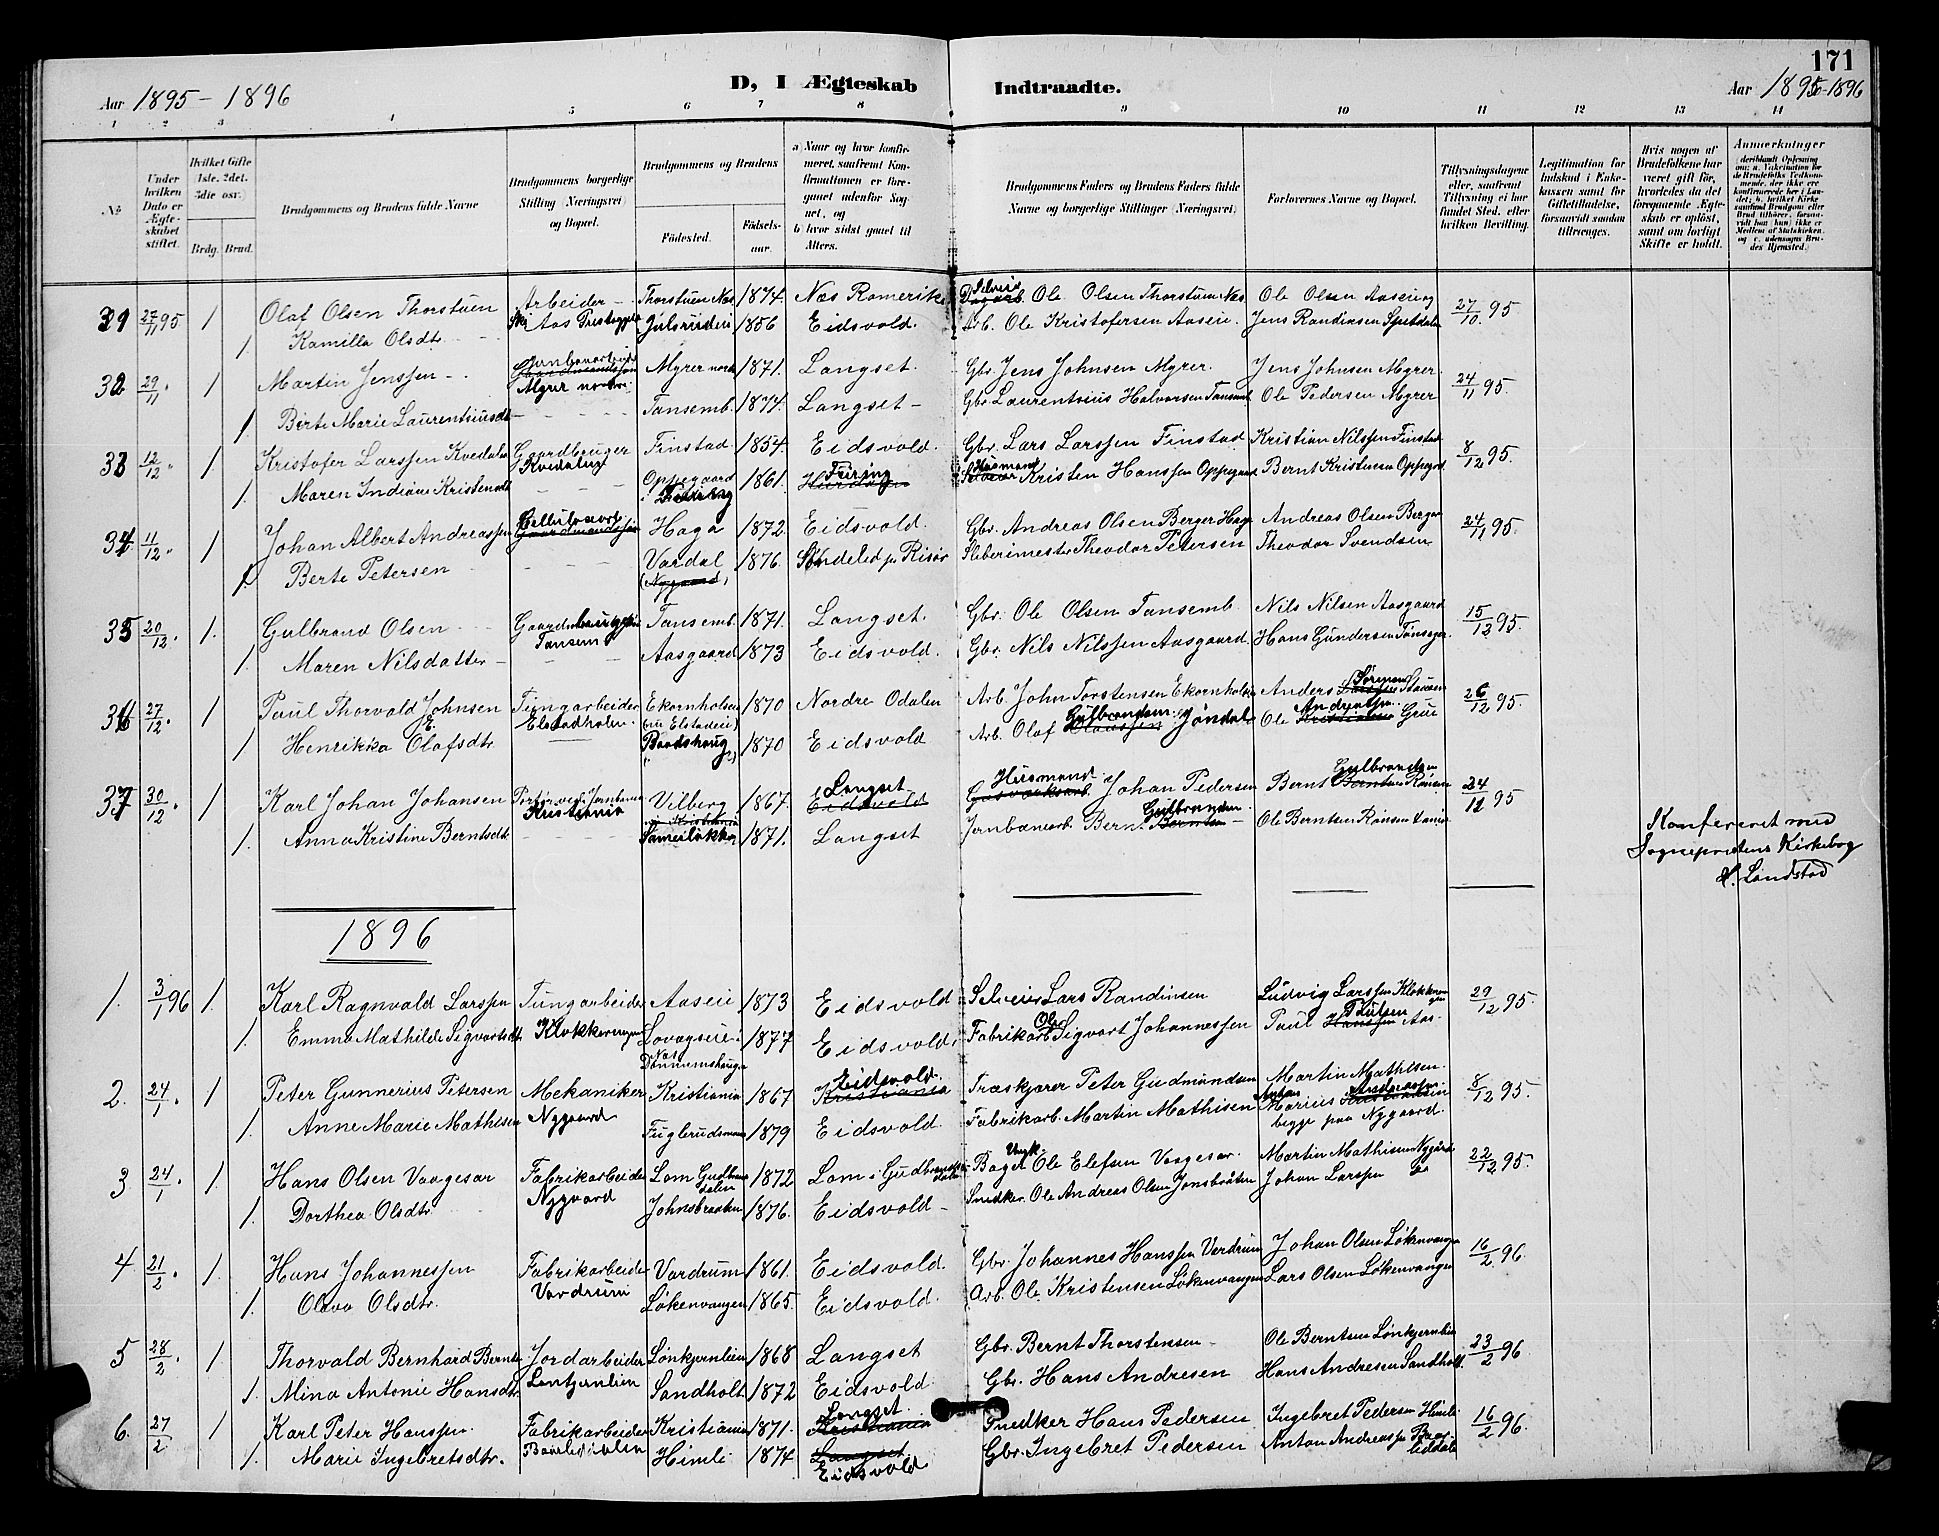 171
D, I Ægteskab Indtraadte.
Aar 1895 - 1896
Aar 1895-1896
1 2 3 4 5 6 7 8 9 10 11 12 13 14
№
Under hvilken Dato er Ægteskabet stiftet.
Hvilket Gifte 1ste, 2det, 3die osv.
Brdg. Brud.
Brudgommens og Brudens fulde Navne
Brudgommens borgerlige Stilling (Næringsvei) og Bopæl.
Brudgommens og Brudens
Fødested. Fødselsaar.
a) Naar og hvor konfirmeret, saafremt Konfirmationen er foregaaet udenfor Sognet, og
b) hvor sidst gaaet til Alters.
Brudgommens Faders og Brudens Faders fulde Navne og borgerlige Stillinger (Næringsvei)
Forlovernes Navne og Bopæl.
Tillysningsdagene eller, saafremt Tillysning ei har fundet Sted, efter hvilken Bevilling.
Legitimation for Indskud i Enkekassen samt for Giftetilladelse, forsaavidt saadan tiltrænges.
Hvis nogen af Brudefolkene har været gift før, hvorledes da det foregaaende Ægteskab er opløst, samt om lovligt Skifte er holdt.
Anmærkninger
31 27/11 95 1 Olaf Olsen Thorstuen Arbeider Thorstuen Næs 1874. Næs Romerike Ole Olsen Thorstuen Næs Ole Olsen Aaseieg 27/10 95
1. Kamilla Olsdtr. Julsrudeie 1856 Eidsvold. Arb. Ole Kristofersen Aaseie. Jens Randinsen
32 29/11 1 Martin Jenssen Myrer nordre Myrer nordre 1871. Langset. Gbr. Jens Johnsen Myrer. Jens Johnsen Myrer 24/11 95.
1 Berte Marie Laurentiusdtr Tansemb. 1874. Langset Gbr. Laurentius Halvorsen Tansemb Ole Pedersen Myrer
33 12/12 1. Kristofer Larssen Kvedalen Gaardbruger Kvedalen Finstad 1854. Eidsvold. Gbr. Lars Larssen Finstad Kristian Nilssen Finstad 8/12 95.
1. Maren Indiane Kristensdtr Oppegaard i Feiring 1861. Feiring Husmand Kristen Hanssen Oppegaard Bernt Kristensen Oppegrd
34 11/12 1 Johan Albert Andreassen Haga 1872. Eidsvold. Gbr. Andreas Olsen Berger Haga Andreas Olsen Berger 24/11 95.
1. Berte Petersen Vardal (Nygaard) 1876. Søndeled pr Risør Sliberimester Theodor Petersen Theodor Svendsen
35 20/12. 1. Gulbrand Olsen Tansem Tansemb. 1871. Langset. Gbr. Ole Olsen Tansemb. Nils Nilsen Aasgaard 15/12 95.
1. Maren Nilsdatter Aasgaard 1873 Eidsvold. Gbr. Nils Nilssen Aasgaard. Hans Gundersen
36 27/12. 1 Paul Thorvald Johnsen Elstadholen. Ekornholen 1870 Nordre Odalen Arb. John Torstensen Ekornholen Anders Sørensen 26/12 95.
1 Henrikka E. Olafsdtr. Baadshaug 1870 Eidsvold Arb. Olaf Gulbrandsen Jøndal Ole Andreassen
37 30/12. 1 Karl Johan Johansen Kristiania Vilberg 1867. Langset Husmand Johan Pedersen Bernt Gulbrandsen 24/11 95
1. Anna Kristine Berntsdtr Sameiløkka 1871. Langset Jernbanearb. Bernt Gulbrandsen Ole Berntsen
Konfereret med
Sogneprestens Kirkebog
Landstad
1896
1. 3/1 96 1. Karl Ragnvald Larssen Tungarbeider Klokkerengen Aaseie 1873 Eidsvold Selveier Lars Randinsen Ludvig Larssen Klokkerengen 29/12 95.
1. Emma Mathilde Sigvartsdtr. 1877 Eidsvold. Fabrikarb. Ole Sigvart Johannessen Paul Paulsen Aas.
2. 24/1. 1 Peter Gunnerius Petersen Mekaniker Nygaard Kristiania 1867 Eidsvold. Træskjærer Peter Gudmundsen Martin Mathisen. 8/12 95.
1. Anne Marie Mathisen 1879 Eidsvold. Fabrikarb. Martin Mathisen begge paa Nygaard.
3 24/1 1. Hans Olsen Vaagesar Fabrikarbeider Nygaard Lom Gudbrandsdalen 1872 Lom i Gudbrandsdalen Ole Elefsen Vaagesar. Martin Mathisen Nygaard 22/12 95.
1. Dorthea Olsdtr. Johnsbraaten 1876. Eidsvold Snedker Ole Andreas Olsen Jonsbråten Johan Larssen
4 21/2. 1. Hans Johannessen Fabrikarbeider Vardrum Vardrum 1861. Eidsvold. Gbr. Johannes Hanssen Verdrum Johan Olsen Løkenvangen 16/2 96
1. Olava Olsdtr. Løkenvangen 1865. Eidsvold. Arb. Ole Kristensen Løkenvangen Lars Olsen Løkenvangen
5 28/2. 1 Thorvald Bernhard Berntsen Jordarbeider Lønkjernlien 1868 Langset Gbr. Bernt Thorstensen Ole Berntsen Lønkjernlien 23/2 96
1. Mina Antonie Hansdtr. Sandholt 1872 Eidsvold. Gbr. Hans Andresen Hans Andresen Sandholt
6. 27/2 1 Karl Peter Hanssen Fabrikarbeider Kristiania 1871. Langset. Snedker Hans Pedersen Ingebret Pedersen Himli 16/2 96.
1. Marie Ingebretsdtr. Himli 1874 Eidsvold Gbr. Ingebret Pedersen Anton Andreassen